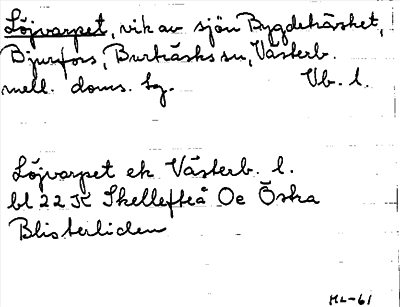 Löjvarpet, vik av sjön Bygdeträsket,
Bjurfors, Burträsks sn, Västerb.
mell. doms. hg. Vb. l.
Löjvarpet ek Västerb. l.
bl 22 K Skellefteå Oe Öska
Blisterliden
HL-61